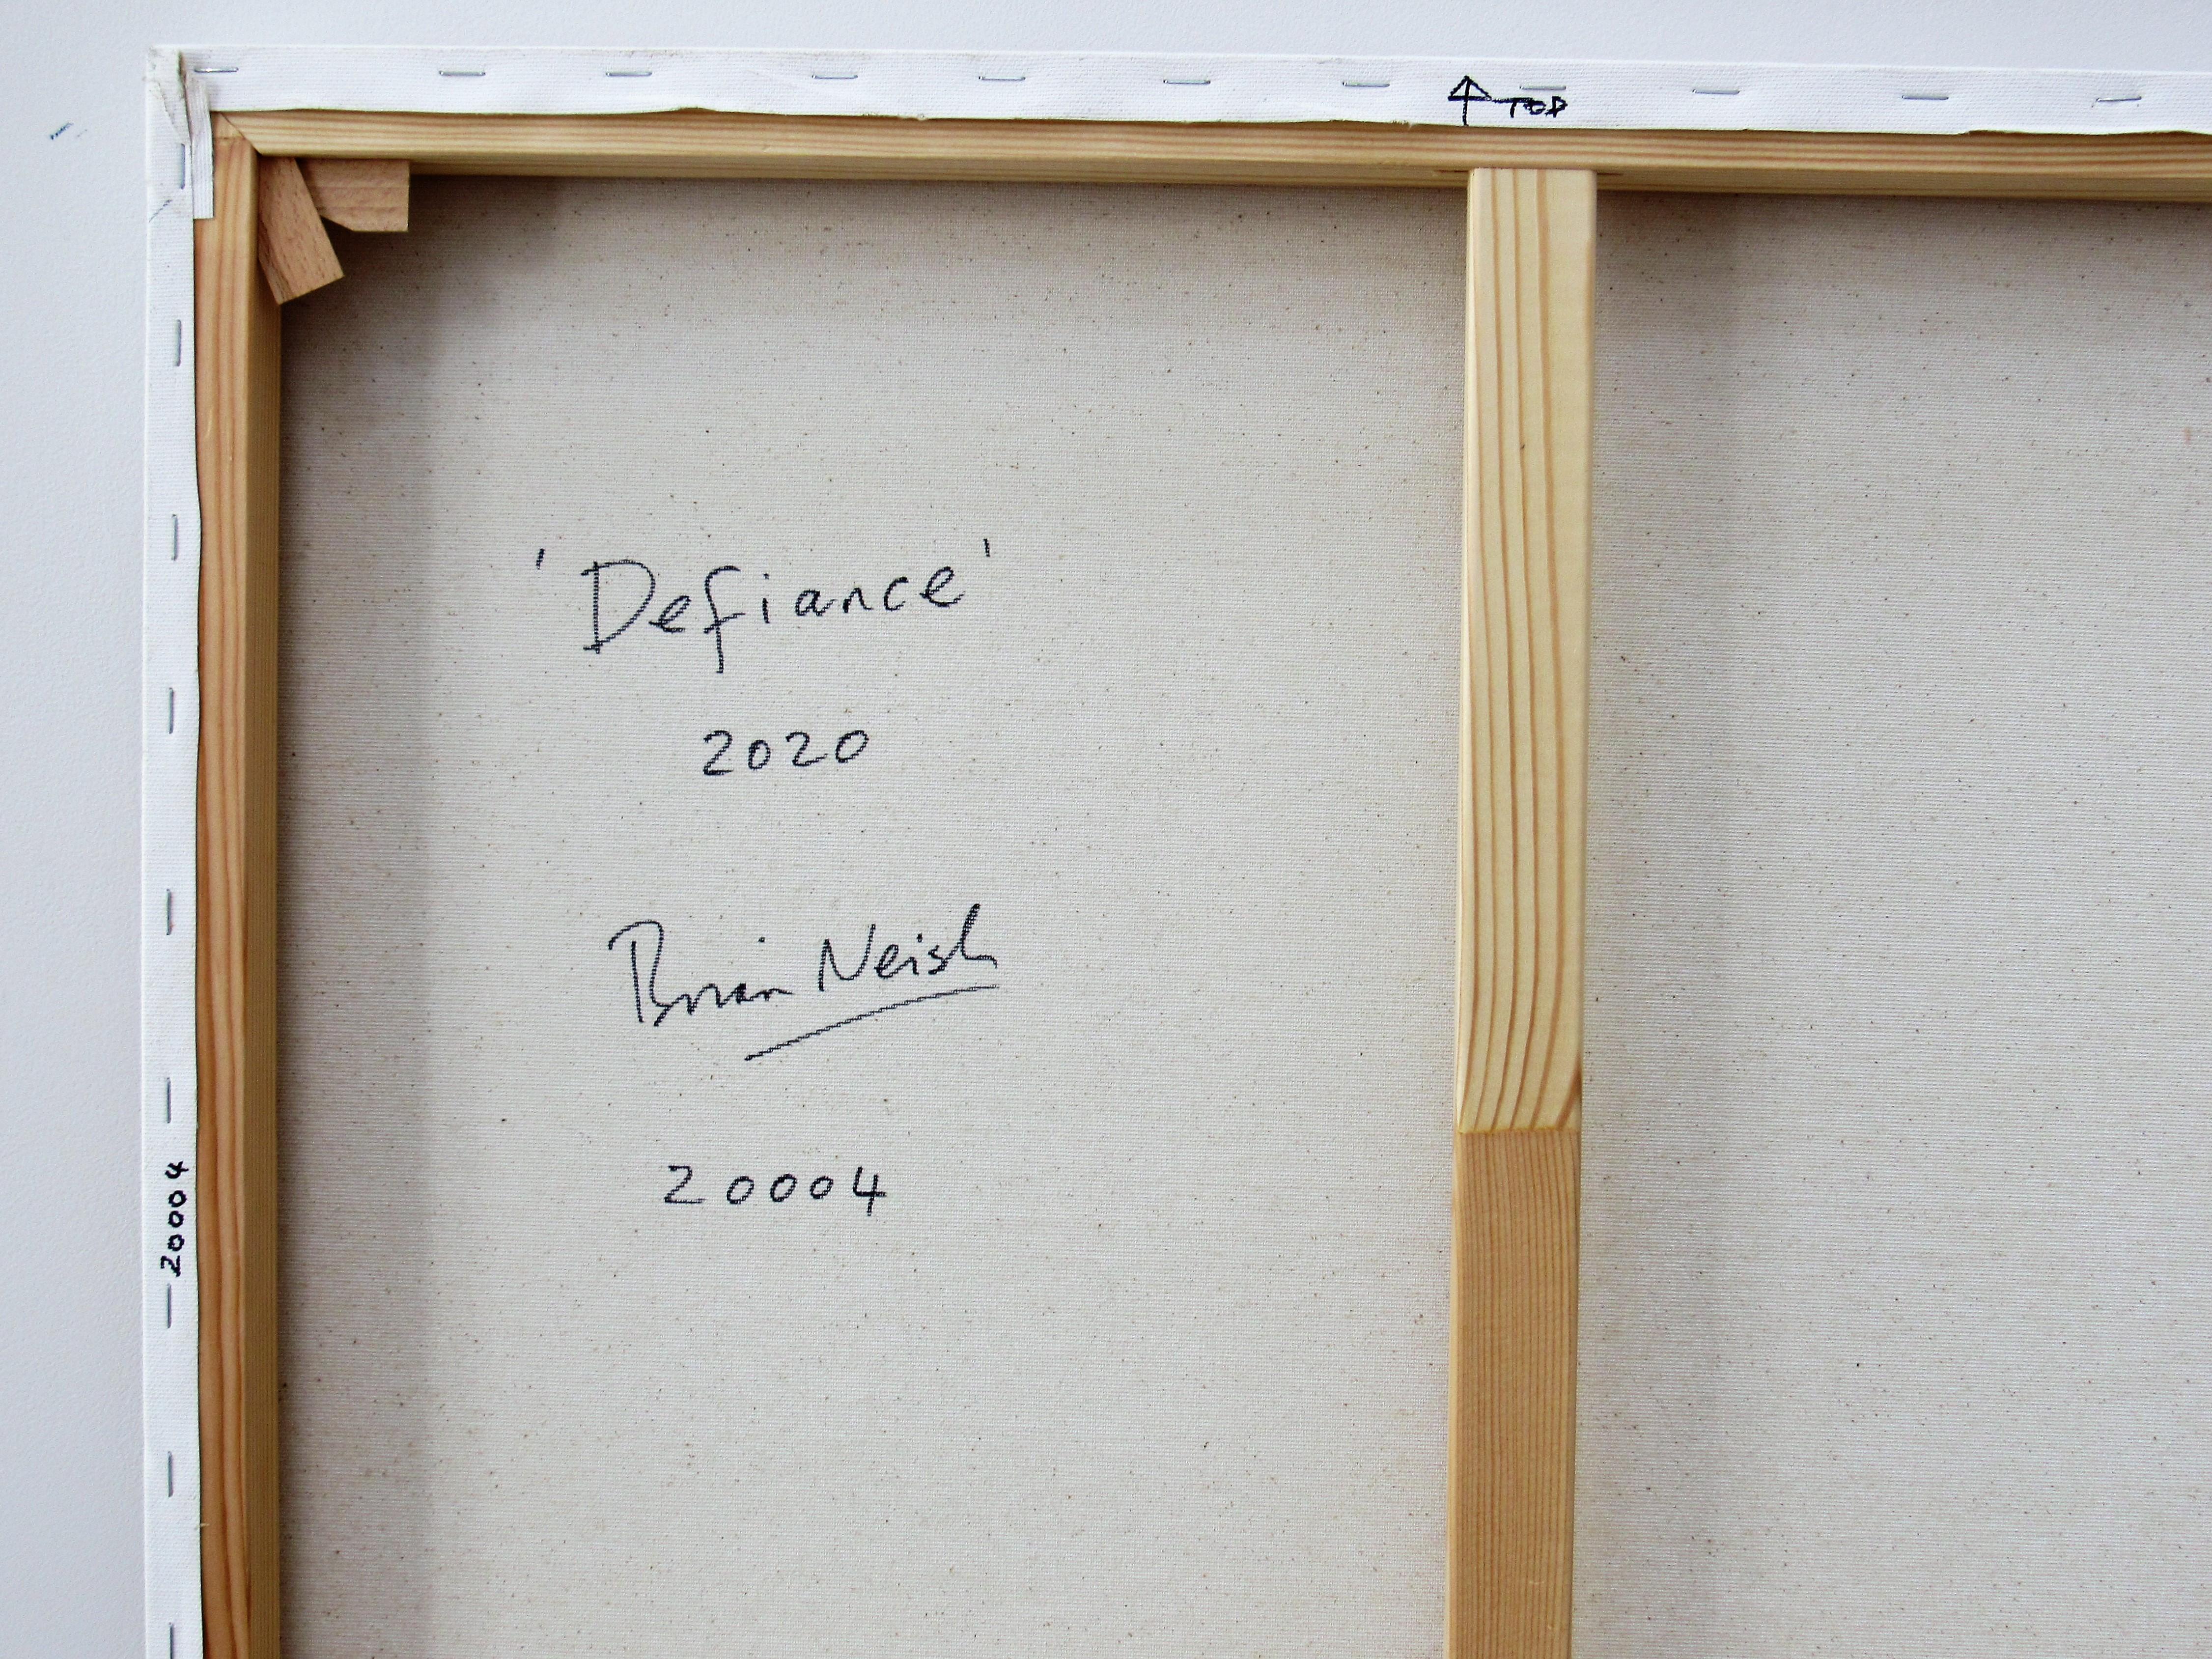 TOP
'Defiance'
2020
Brian Neish
20004
20004